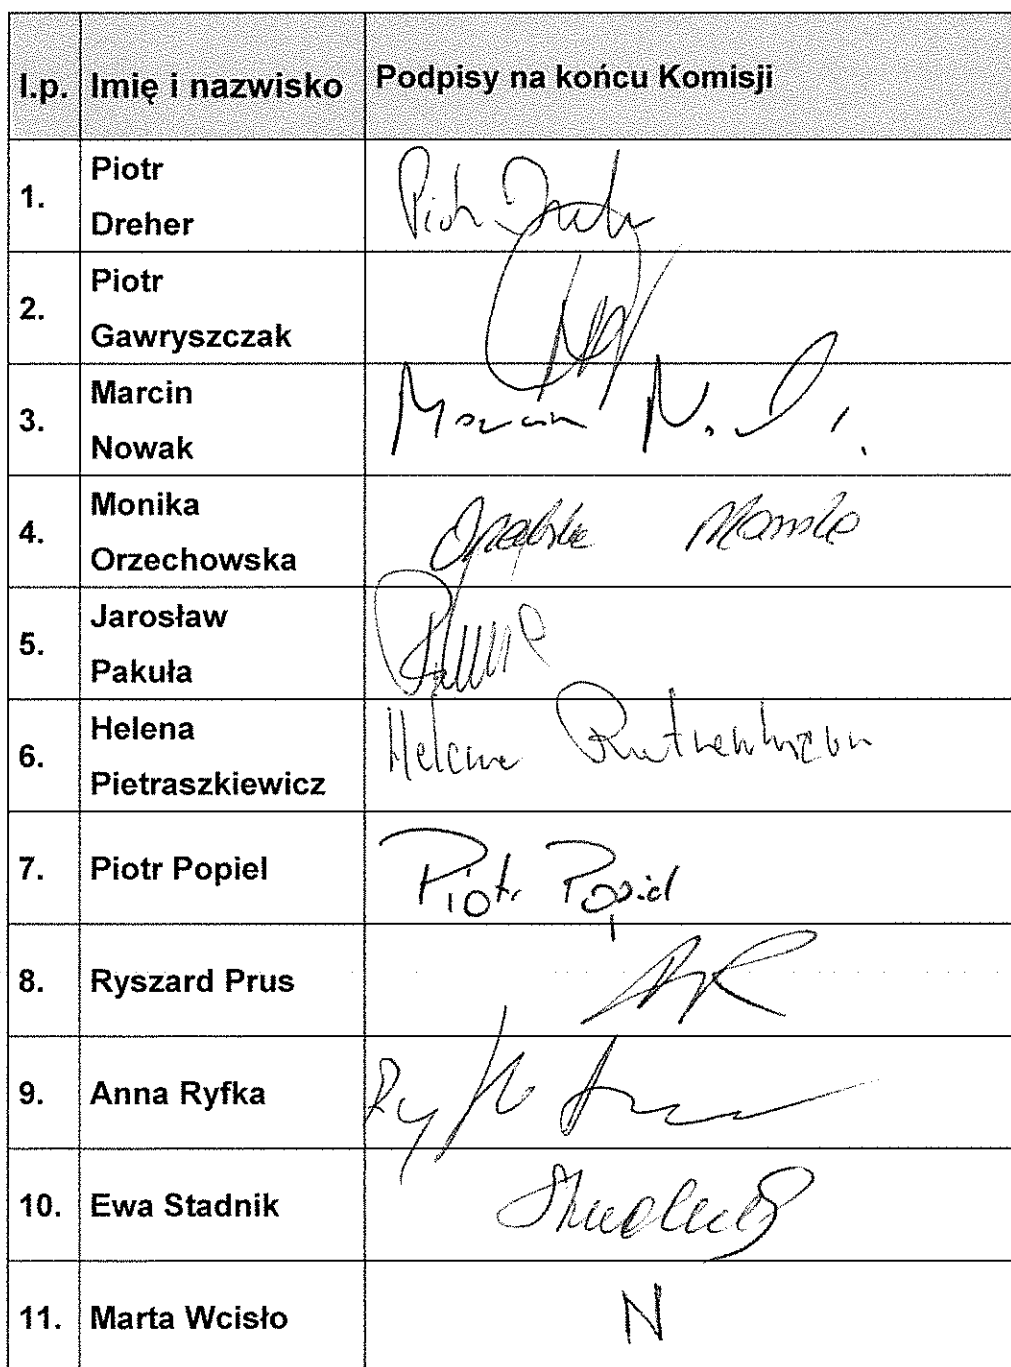 l.p. Imię i nazwisko Podpisy na końcu Komisji
1. Piotr
Dreher
Piotr
2. Piotr
Gawryszczak
3. Marcin
Nowak
Marcin N.
4. Monika
Orzechowska
Monika
5. Jarosław
Pakuła
6. Helena
Pietraszkiewicz
Helena
7. Piotr Popiel Piotr Popiel
8. Ryszard Prus
9. Anna Ryfka
10. Ewa Stadnik
11. Marta Wcisło N